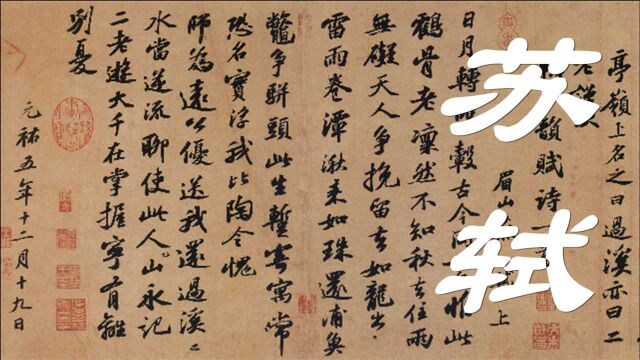 亭嶺上名之曰過溪亦曰二
老謹
韻賦詩一
眉山 上
日月轉 轂古今 惟此
鶴骨老凜然不知秋去住兩
無礙天人爭挽留去如龍出
雷雨卷潭湫来如珠還浦魚
鱉爭駢頭此生暫寄寓常
恐名實浮我比陶令愧
師為遠公優送我還過溪溪
水當逆流聊使此人山永記
二老遊大千在掌握寧有離
別憂
元祐五年十二月十九日
苏轼